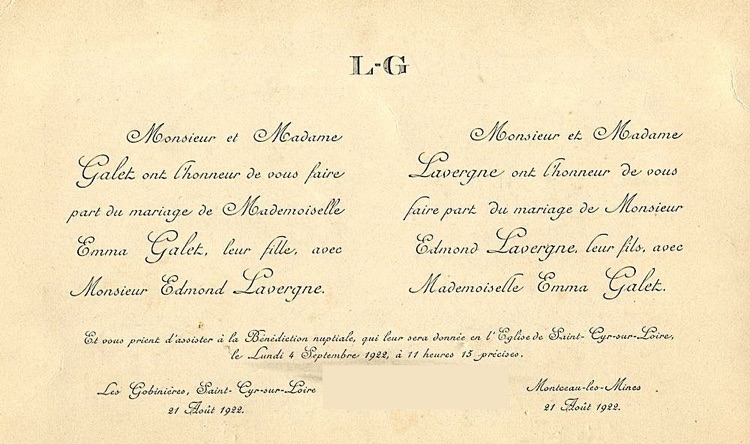 L-G
Monsieur et Madame
Galet ont l'honneur de vous faire
part du mariage de Mademoiselle
Emma Galet, leur fille, avec
Monsieur Edmond Lavergne.
Monsieur et Madame
Lavergne ont l'honneur de vous
faire part du mariage de Monsieur
Edmond Lavergne, leur fils, avec
Mademoiselle Emma Galet.
Et vous prient d'assister à la Bénédiction nuptiale, qui leur sera donnée en l'Eglise de Saint-Cyr-sur-Loire,
le Lundi 4 Septembre 1922, à 11 heures 15 précises.
Les Gobinières, Saint-Cyr-sur-Loire
21 Août 1922.
Montceau-les-Mines
21 Août 1922.